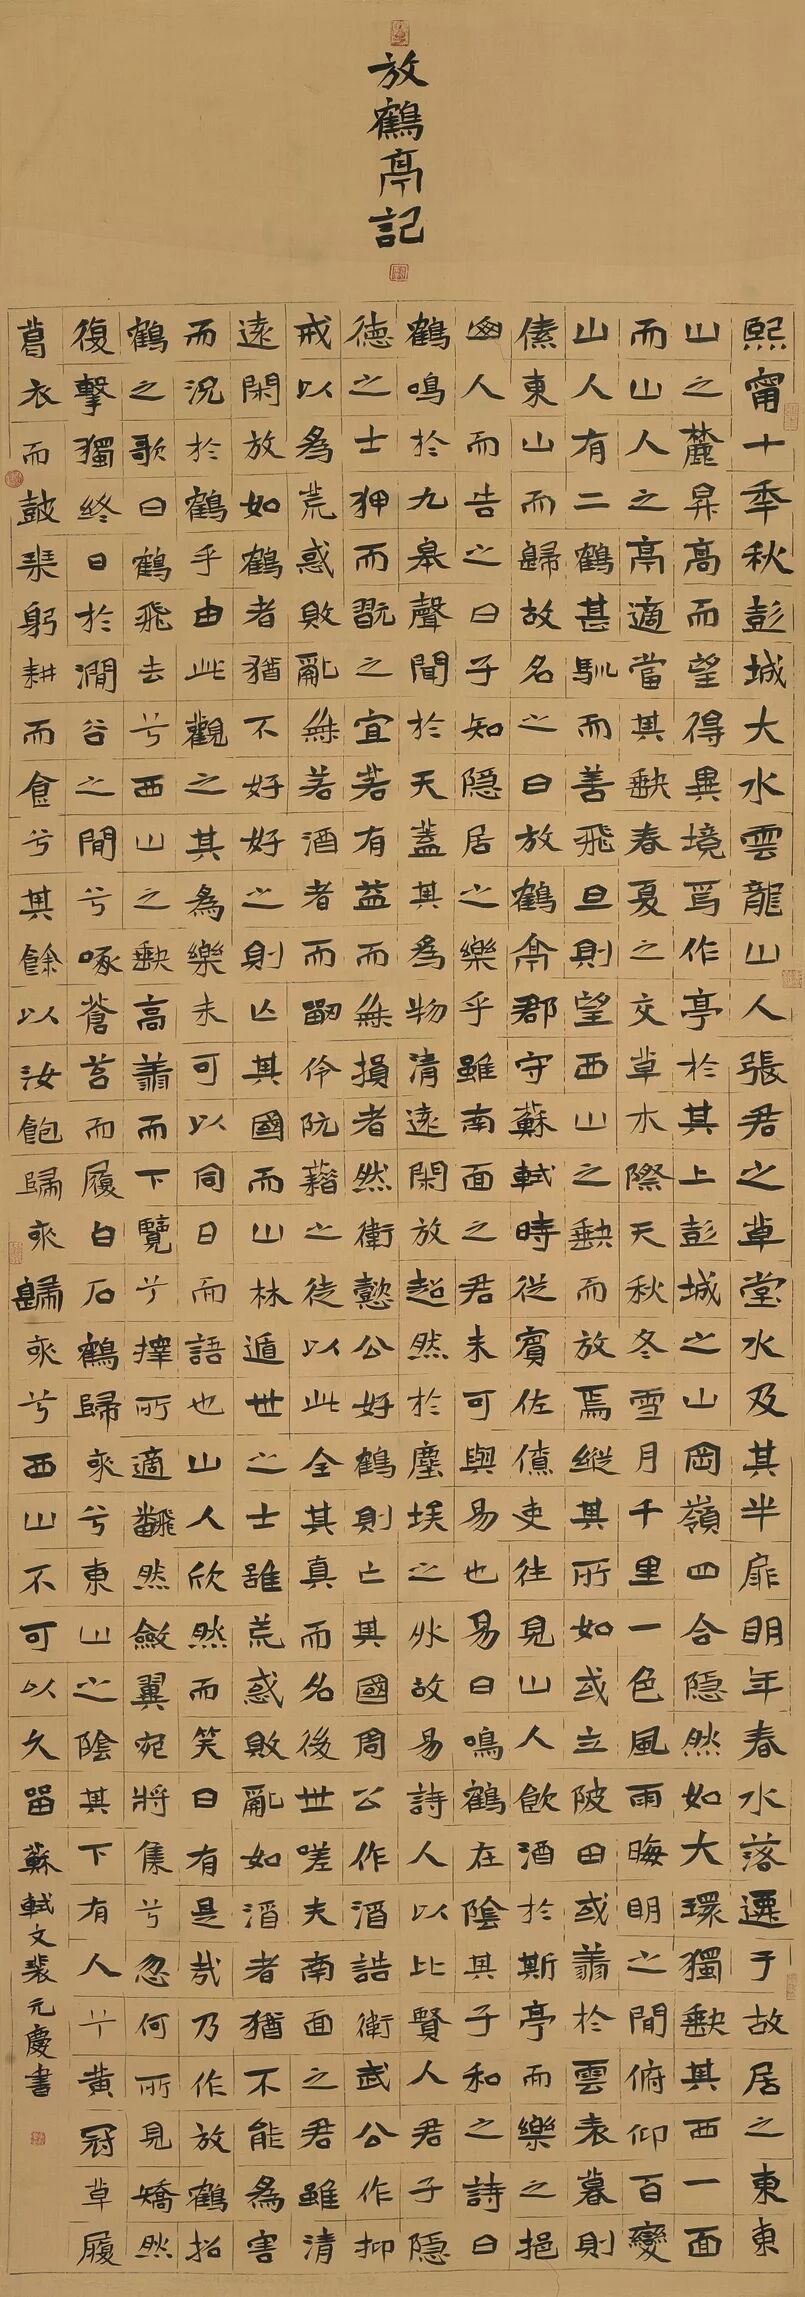 放鶴亭記
熙甯十秊秋彭城大水雲龍山人張君之草堂水及其半扉明年春水落遷于故居之東東
山之麓昇高而望得異境焉作亭於其上彭城之山岡嶺四合隱然如大環獨缺其西一面
而山人之亭適當其缺春夏之交草木際天秋冬雪月千里一色風雨晦明之間俯仰百變
山人有二鶴甚馴而善飛旦則望西山之缺而放焉縱其所如或立陂田或翥於雲表暮則
傃東山而歸故名之曰放鶴亭郡守蘇軾時從賓佐僚吏往見山人飲酒於斯亭而樂之挹
人而告之曰子知隱居之樂乎雖南面之君未可與易也易曰鳴鶴在陰其子和之詩曰
鶴鳴於九皋聲聞於天蓋其為物清遠閑放超然於塵埃之外故易詩人以比賢人君子隱
德之士狎而翫之宜若有益而無損者然衛懿公好鶴則亡其國周公作酒誥衛武公作抑
戒以為荒惑敗亂無若酒者而劉伶阮籍之徒以此全其真而名後世嗟夫南面之君雖清
遠閑放如鶴者猶不好好之則亡其國而山林遁世之士雖荒惑敗亂如酒者猶不能為害
而況於鶴乎由此觀之其為樂未可以同日而語也山人欣然而笑曰有是哉乃作放鶴招
鶴之歌曰鶴飛去兮西山之缺高翥而下覽兮擇所適翻然斂翼宛將集兮忽何所見矯然
復擊獨終日於澗谷之間兮啄蒼苔而履白石鶴歸來兮東山之陰其下有人兮黃冠草履
葛衣而鼓琴躬耕而食兮其餘以汝飽歸來歸來兮西山不可以久留 蘇軾文裴元慶書